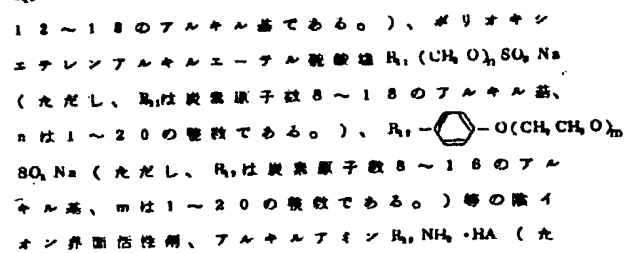 12～18のアルキル基である。)、ポリオキシ
エチレンアルキルエーテル硫酸塩 (CH₂O)ₙSO₃Na
(ただし、 は炭素原子数8～18のアルキル基、
nは1～20の整数である。)、 -O(CH₂CH₂O)ₘ
SO₃Na(ただし、 は炭素原子数8～16のアル
キル基、mは1～20の整数である。)等の陰イ
オン界面活性剤、アルキルアミン NH₂・HA(た